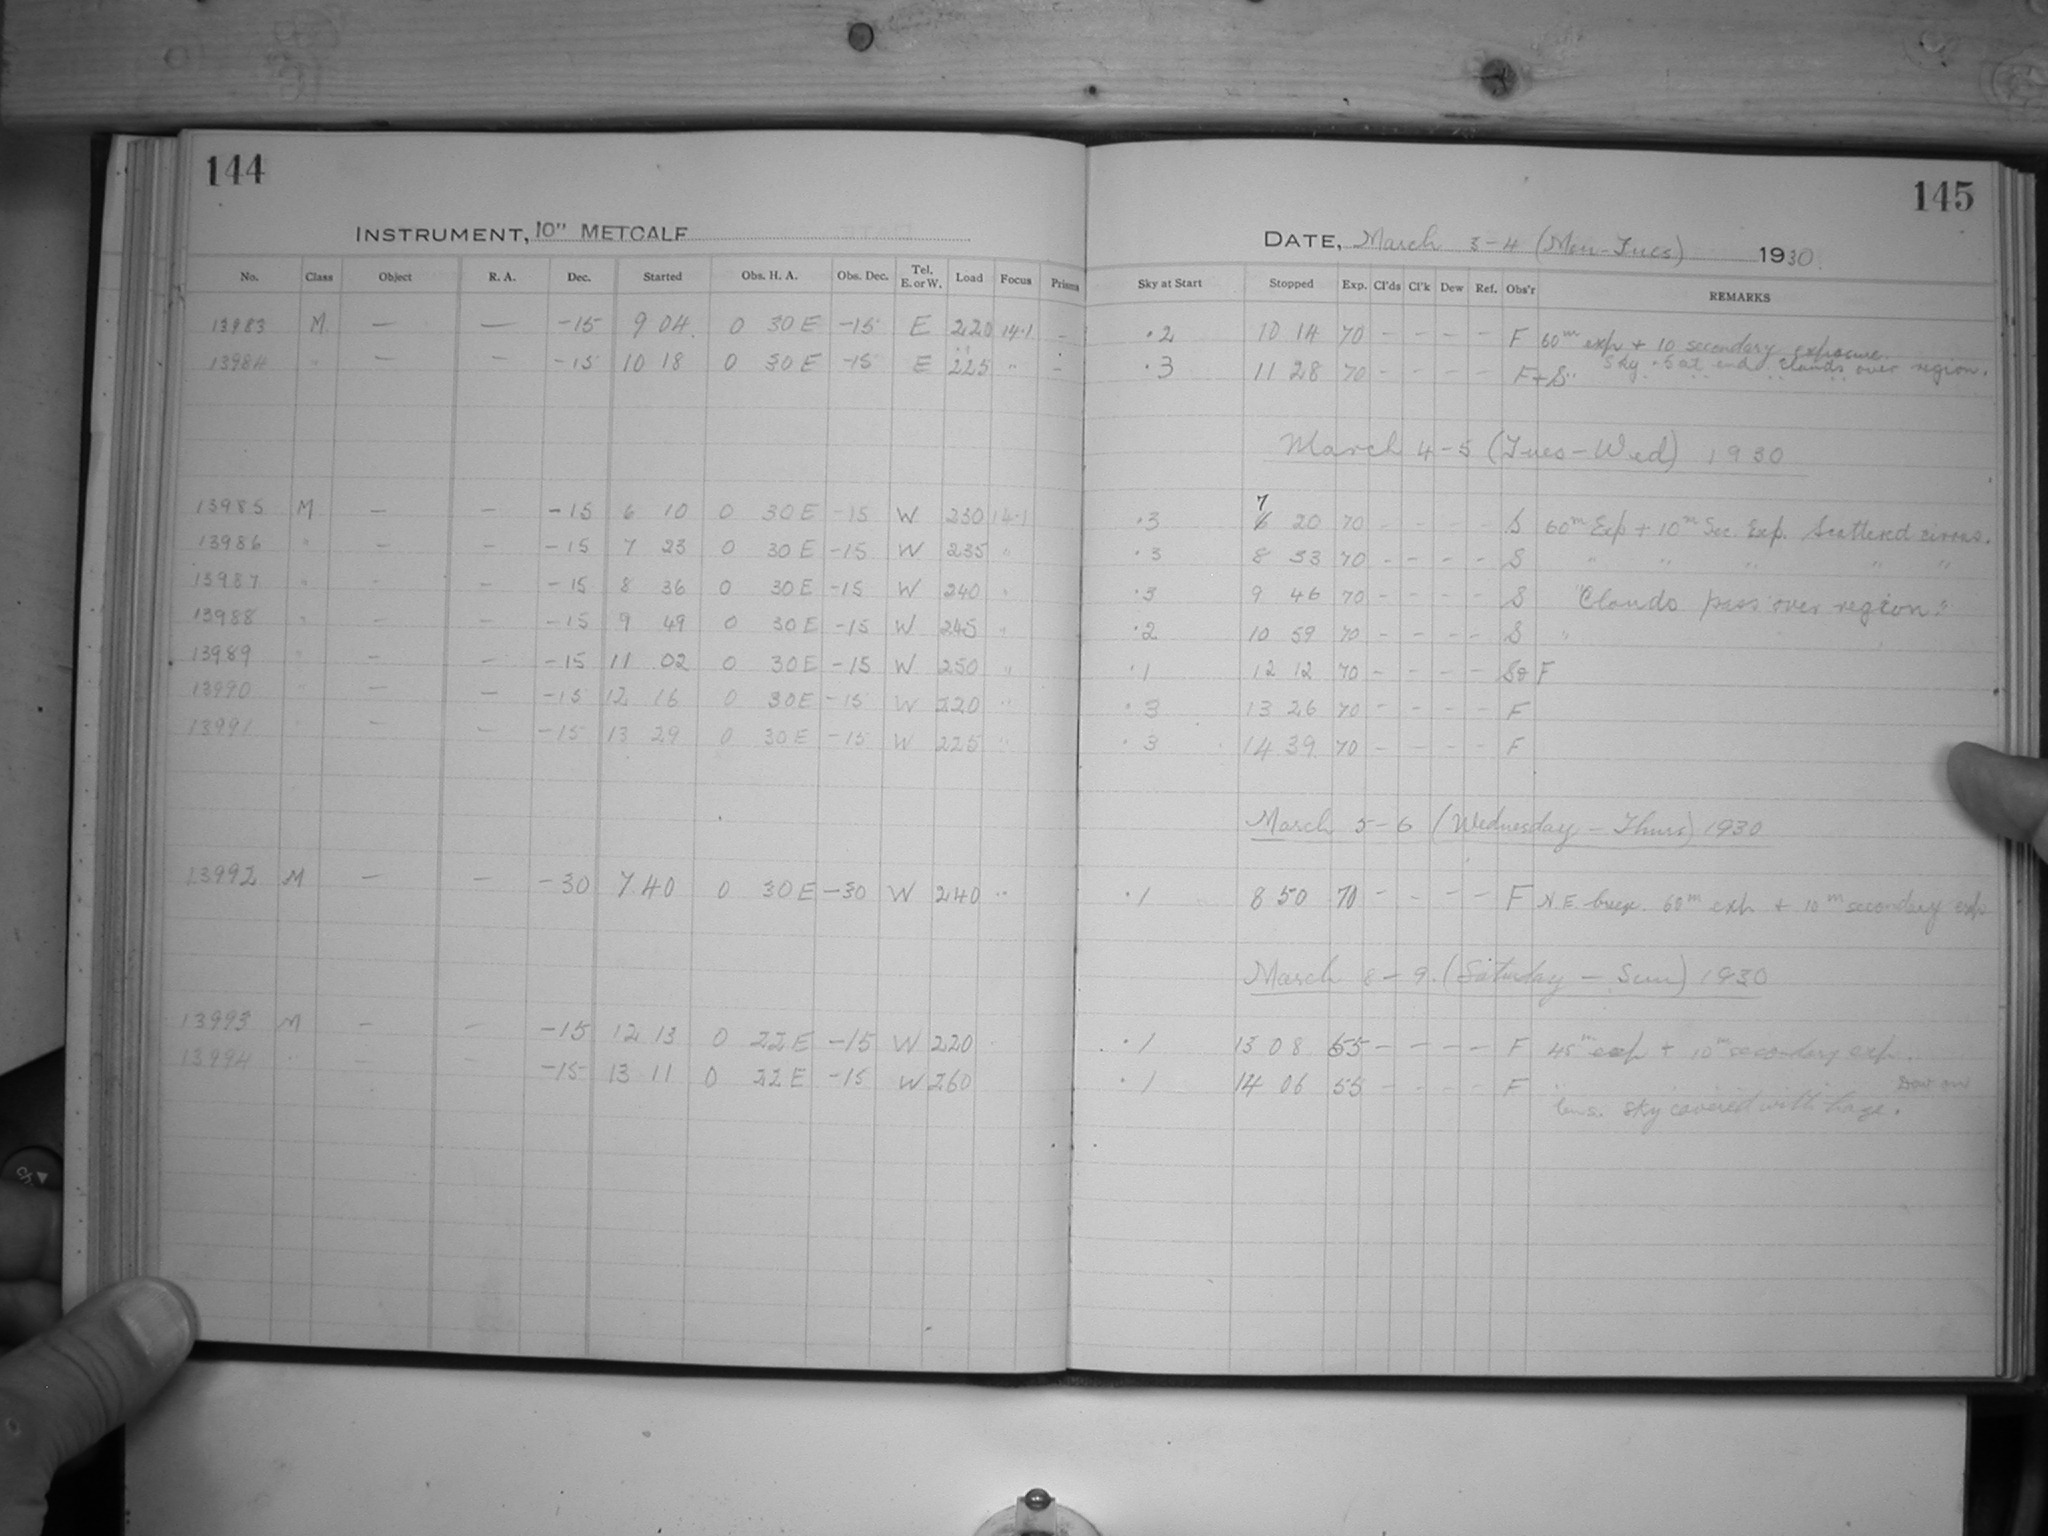 144
145
INSTRUMENT, 10" METCALF
DATE, March 3-4 (Mon-Tues) 1930.
No. Class Object R. A. Dec. Started Obs. H. A. Obs. Dec. Tel. E. or W. Load Focus Prisms Sky at Start Stopped Exp. Cl'ds Cl'k Dew Ref. Obs'r REMARKS
13983 M — — -15 9 04 0 30 E -15 E 220 14.1 - .2 10 14 70 - - - - F 60m exp + 10 secondary exposure.
13984 " — — -15 10 18 0 30 E -15 E 225 " - .3 11 28 70 - - - - F+S " Sky .5 at end Clouds over region.
March 4-5 (Tues-Wed) 1930
13985 M - - -15 6 10 0 30 E -15 W 230 14.1 .3 7 6 20 70 - - - - S 60m Exp + 10m Sec. Exp. Scattered cirrus.
13986 " - - -15 7 23 0 30 E -15 W 235 " .3 8 33 70 - - - - S " " " " "
13987 " - - -15 8 36 0 30 E -15 W 240 " .3 9 46 70 - - - - S "Clouds pass over region."
13988 " - - -15 9 49 0 30 E -15 W 245 " .2 10 59 70 - - - - S "
13989 " - - -15 11 02 0 30 E -15 W 250 " .1 12 12 70 - - - - S & F
13990 " - - -15 12 16 0 30 E -15 W 220 " .3 13 26 70 - - - - F
13991 " - - -15 13 29 0 30 E -15 W 225 " .3 14 39 70 - - - - F
March 5-6 (Wednesday - Thurs) 1930
13992 M - - -30 7 40 0 30 E -30 W 240 " .1 8 50 70 - - - - F N.E. breeze. 60m exp + 10m secondary exp
March 8-9. (Saturday - Sun) 1930
13993 M - - -15 12 13 0 22 E -15 W 220 .1 13 08 55 - - - - F 45m exp + 10m secondary exp.
13994 " - - -15 13 11 0 22 E -15 W 260 .1 14 06 55 - - - - F " Dew on
lens. Sky covered with haze.